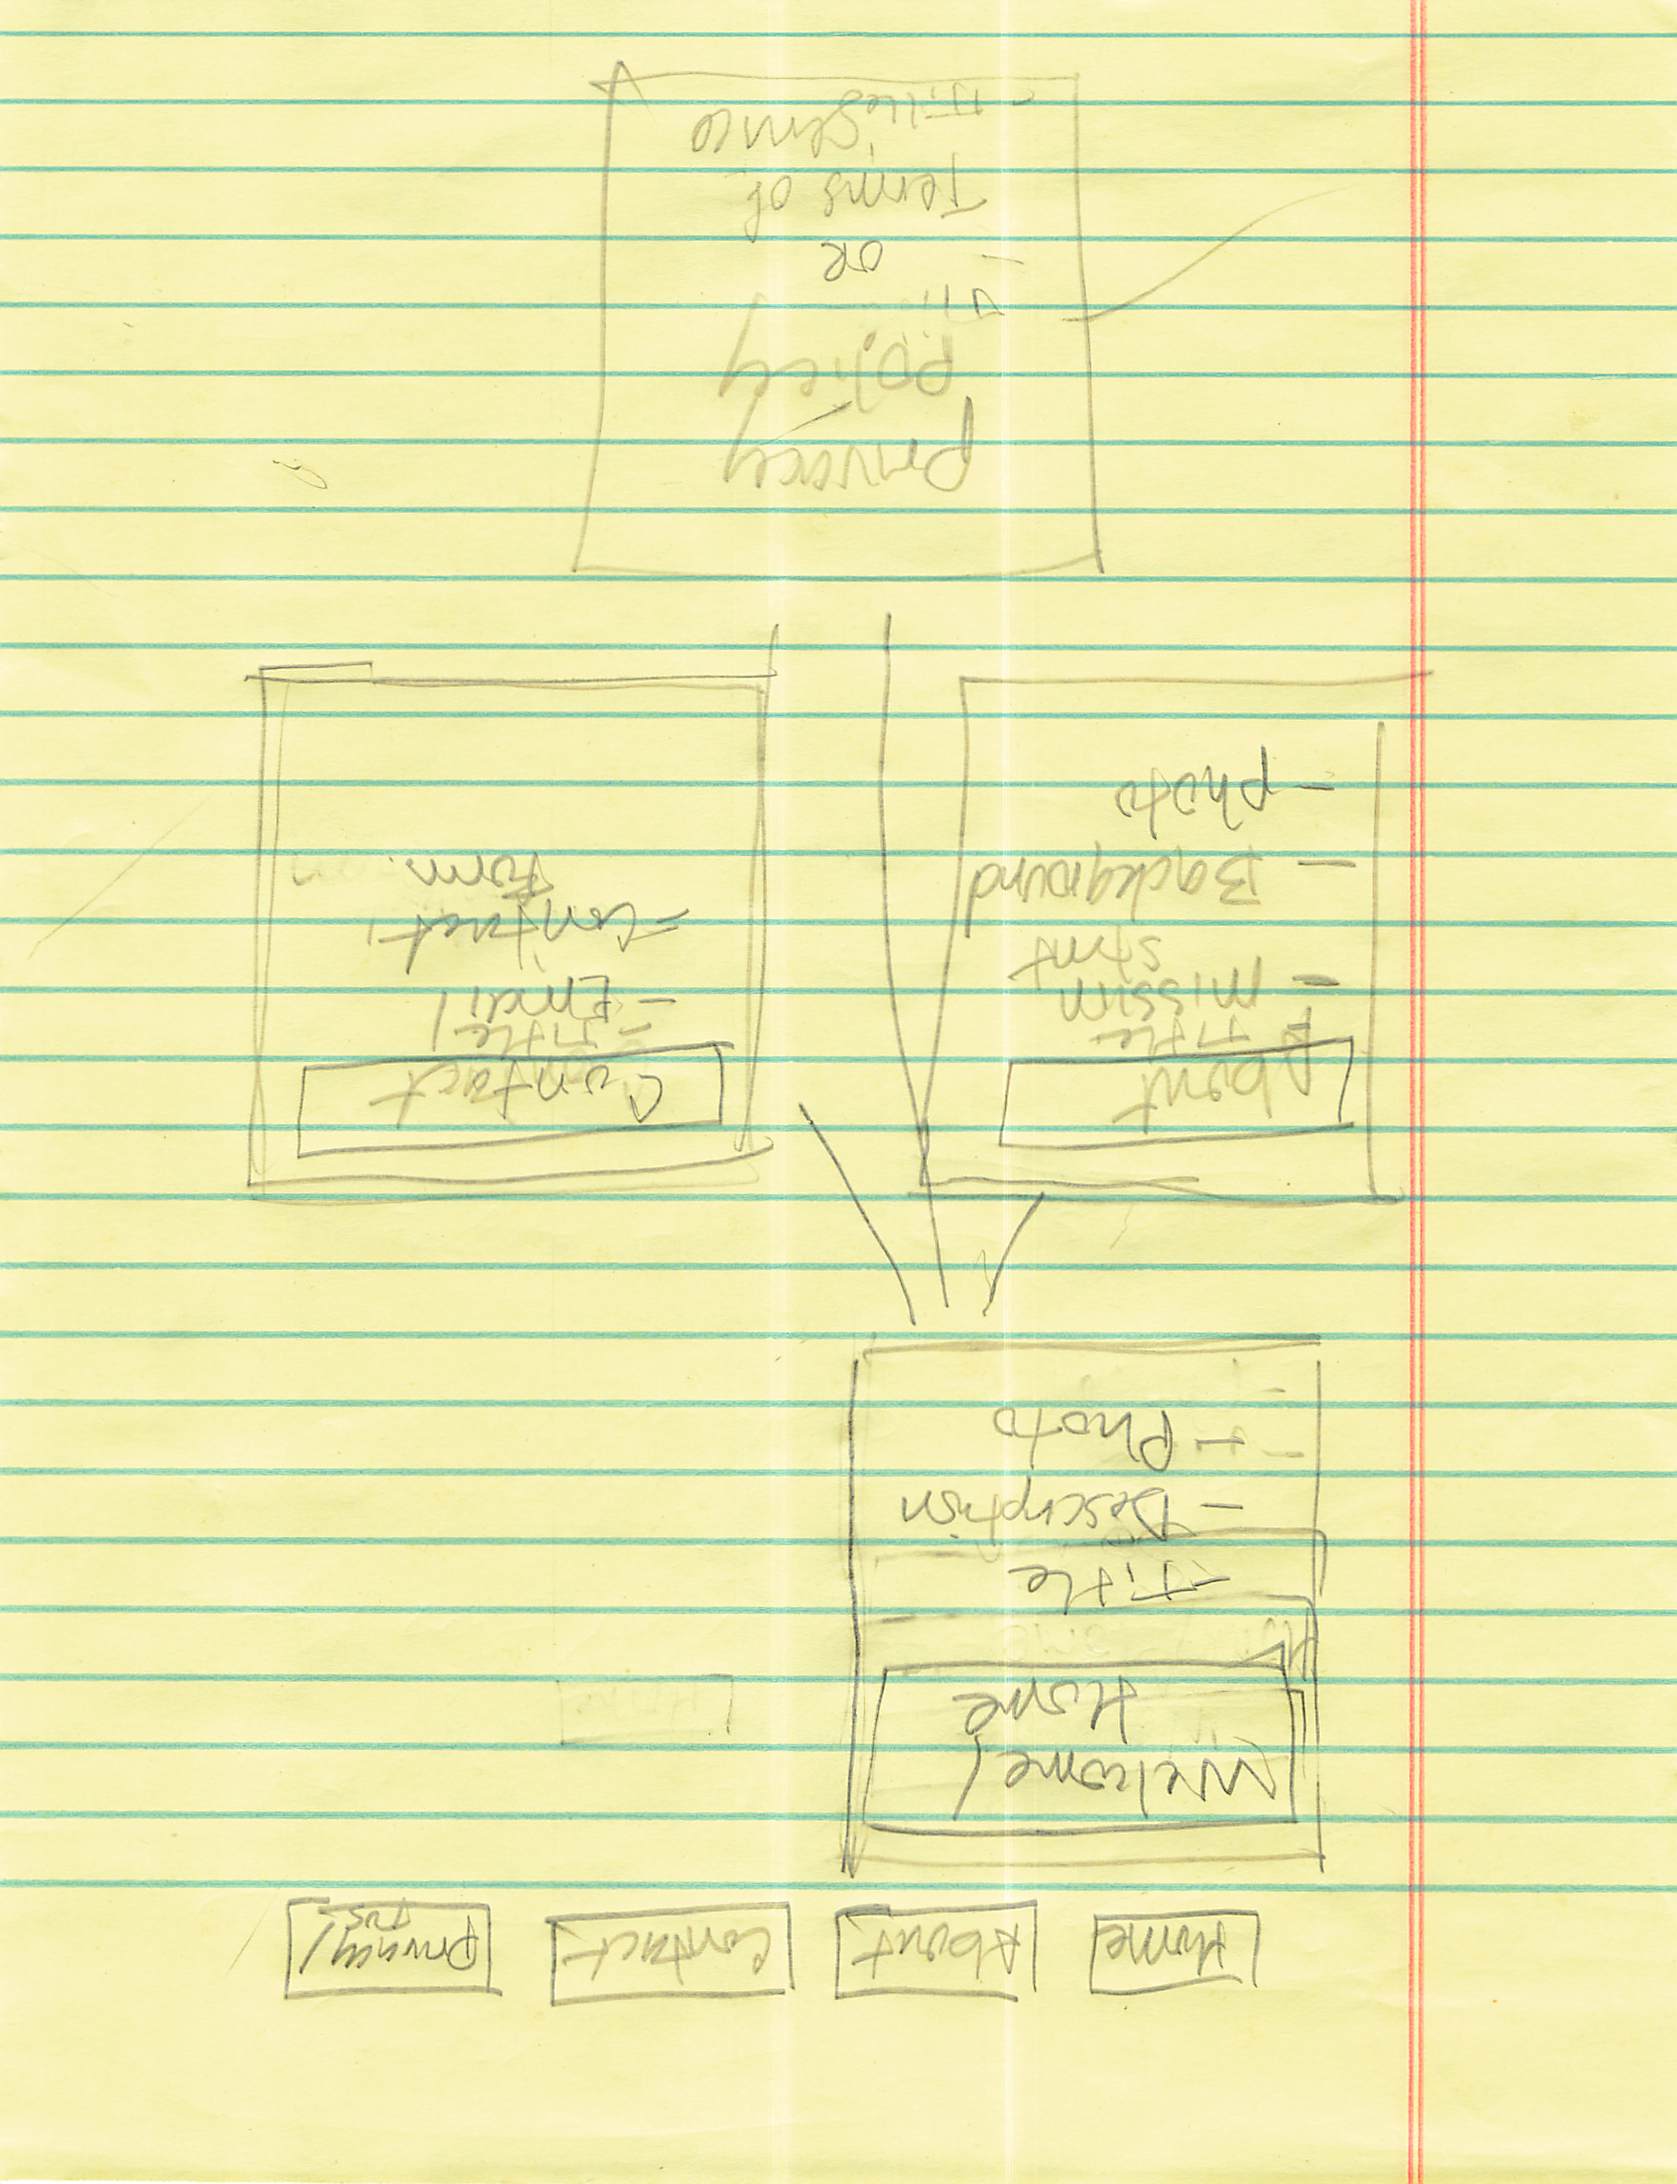 Home About Contact Privacy/
TOS
Welcome/
Home
- Title
- Description
- Photo
About
- Title
- Mission
stmt
- Background
- photo
Contact
- Title
- Email
- Contact
Form.
privacy
policy
OR
Terms of
Service
- Title